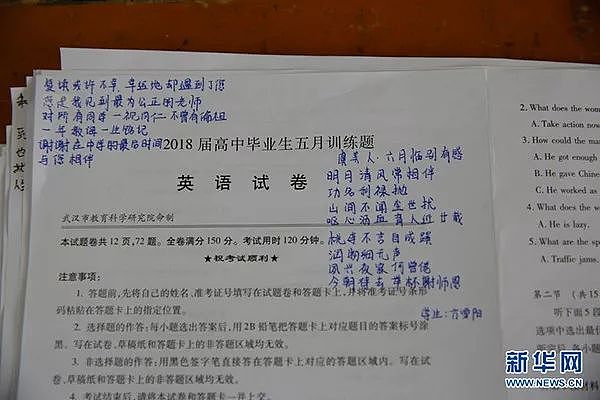 复读或许不幸，幸运地却遇到了您
您是我见到最为公正的老师
对所有同学一视同仁 不曾有偏袒
一年教诲 一生铭记
谢谢在中学的最后时间
与您相伴
2018 届高中毕业生五月训练题
英 语 试 卷
武汉市教育科学研究院命制
本试题卷共 12 页，72 题。全卷满分 150 分。考试用时 120 分钟。
★祝考试顺利★
注意事项：
1. 答题前，先将自己的姓名、准考证号填写在试题卷和答题卡上，并将准考证号条形
码粘贴在答题卡上的指定位置。
2. 选择题的作答：每小题选出答案后，用 2B 铅笔把答题卡上对应题目的答案标号涂
黑。写在试卷、草稿纸和答题卡上的非答题区域均无效。
3. 非选择题的作答：用黑色签字笔直接答在答题卡上对应的答题区域内。写在试
卷、草稿纸和答题卡上的非答题区域均无效。
4. 考试结束后，请将本试卷和答题卡一并上交。
六月临别有感
明月清风常相伴
功名利禄抛
山间不闻尘世扰
呕心沥血育人近廿载
桃李不言自成蹊
润物细无声
夙兴夜寐何曾倦
今朝归去举杯谢师恩
学生：
2. What does the
A. Take action
3. How could the
A. He got enough
B. He gave Chinese
C. He worked as
4. What does the
A. He is lazy.
5. What are the
A. Traffic jams.
第二节 （共 15
听下面 5
选项中选出最
新华网
WWW.NEWS.CN